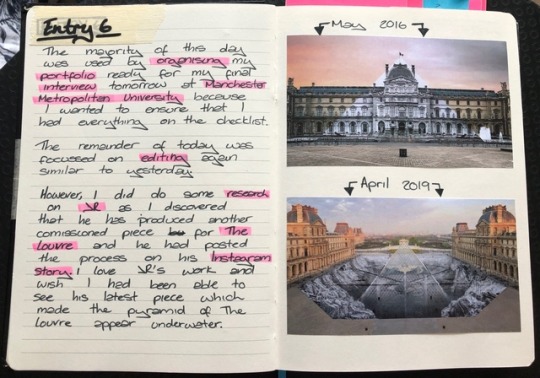 Entry 6
The majority of this day
was used by organising my
portfolio ready for my final
interview tomorrow at Manchester
Metropolitan University because
I wanted to ensure that I
had everything on the checklist.
The remainder of today was
focussed on editing again
similar to yesterday.
However, I did do some research
on JR as I discovered
that he has produced another
comissioned piece for The
Louvre and he had posted
the process on his Instagram
story. I love JR's work and
wish I had been able to
see his latest piece which
made the pyramid of The
Louvre appear underwater.
May 2016
April 2019